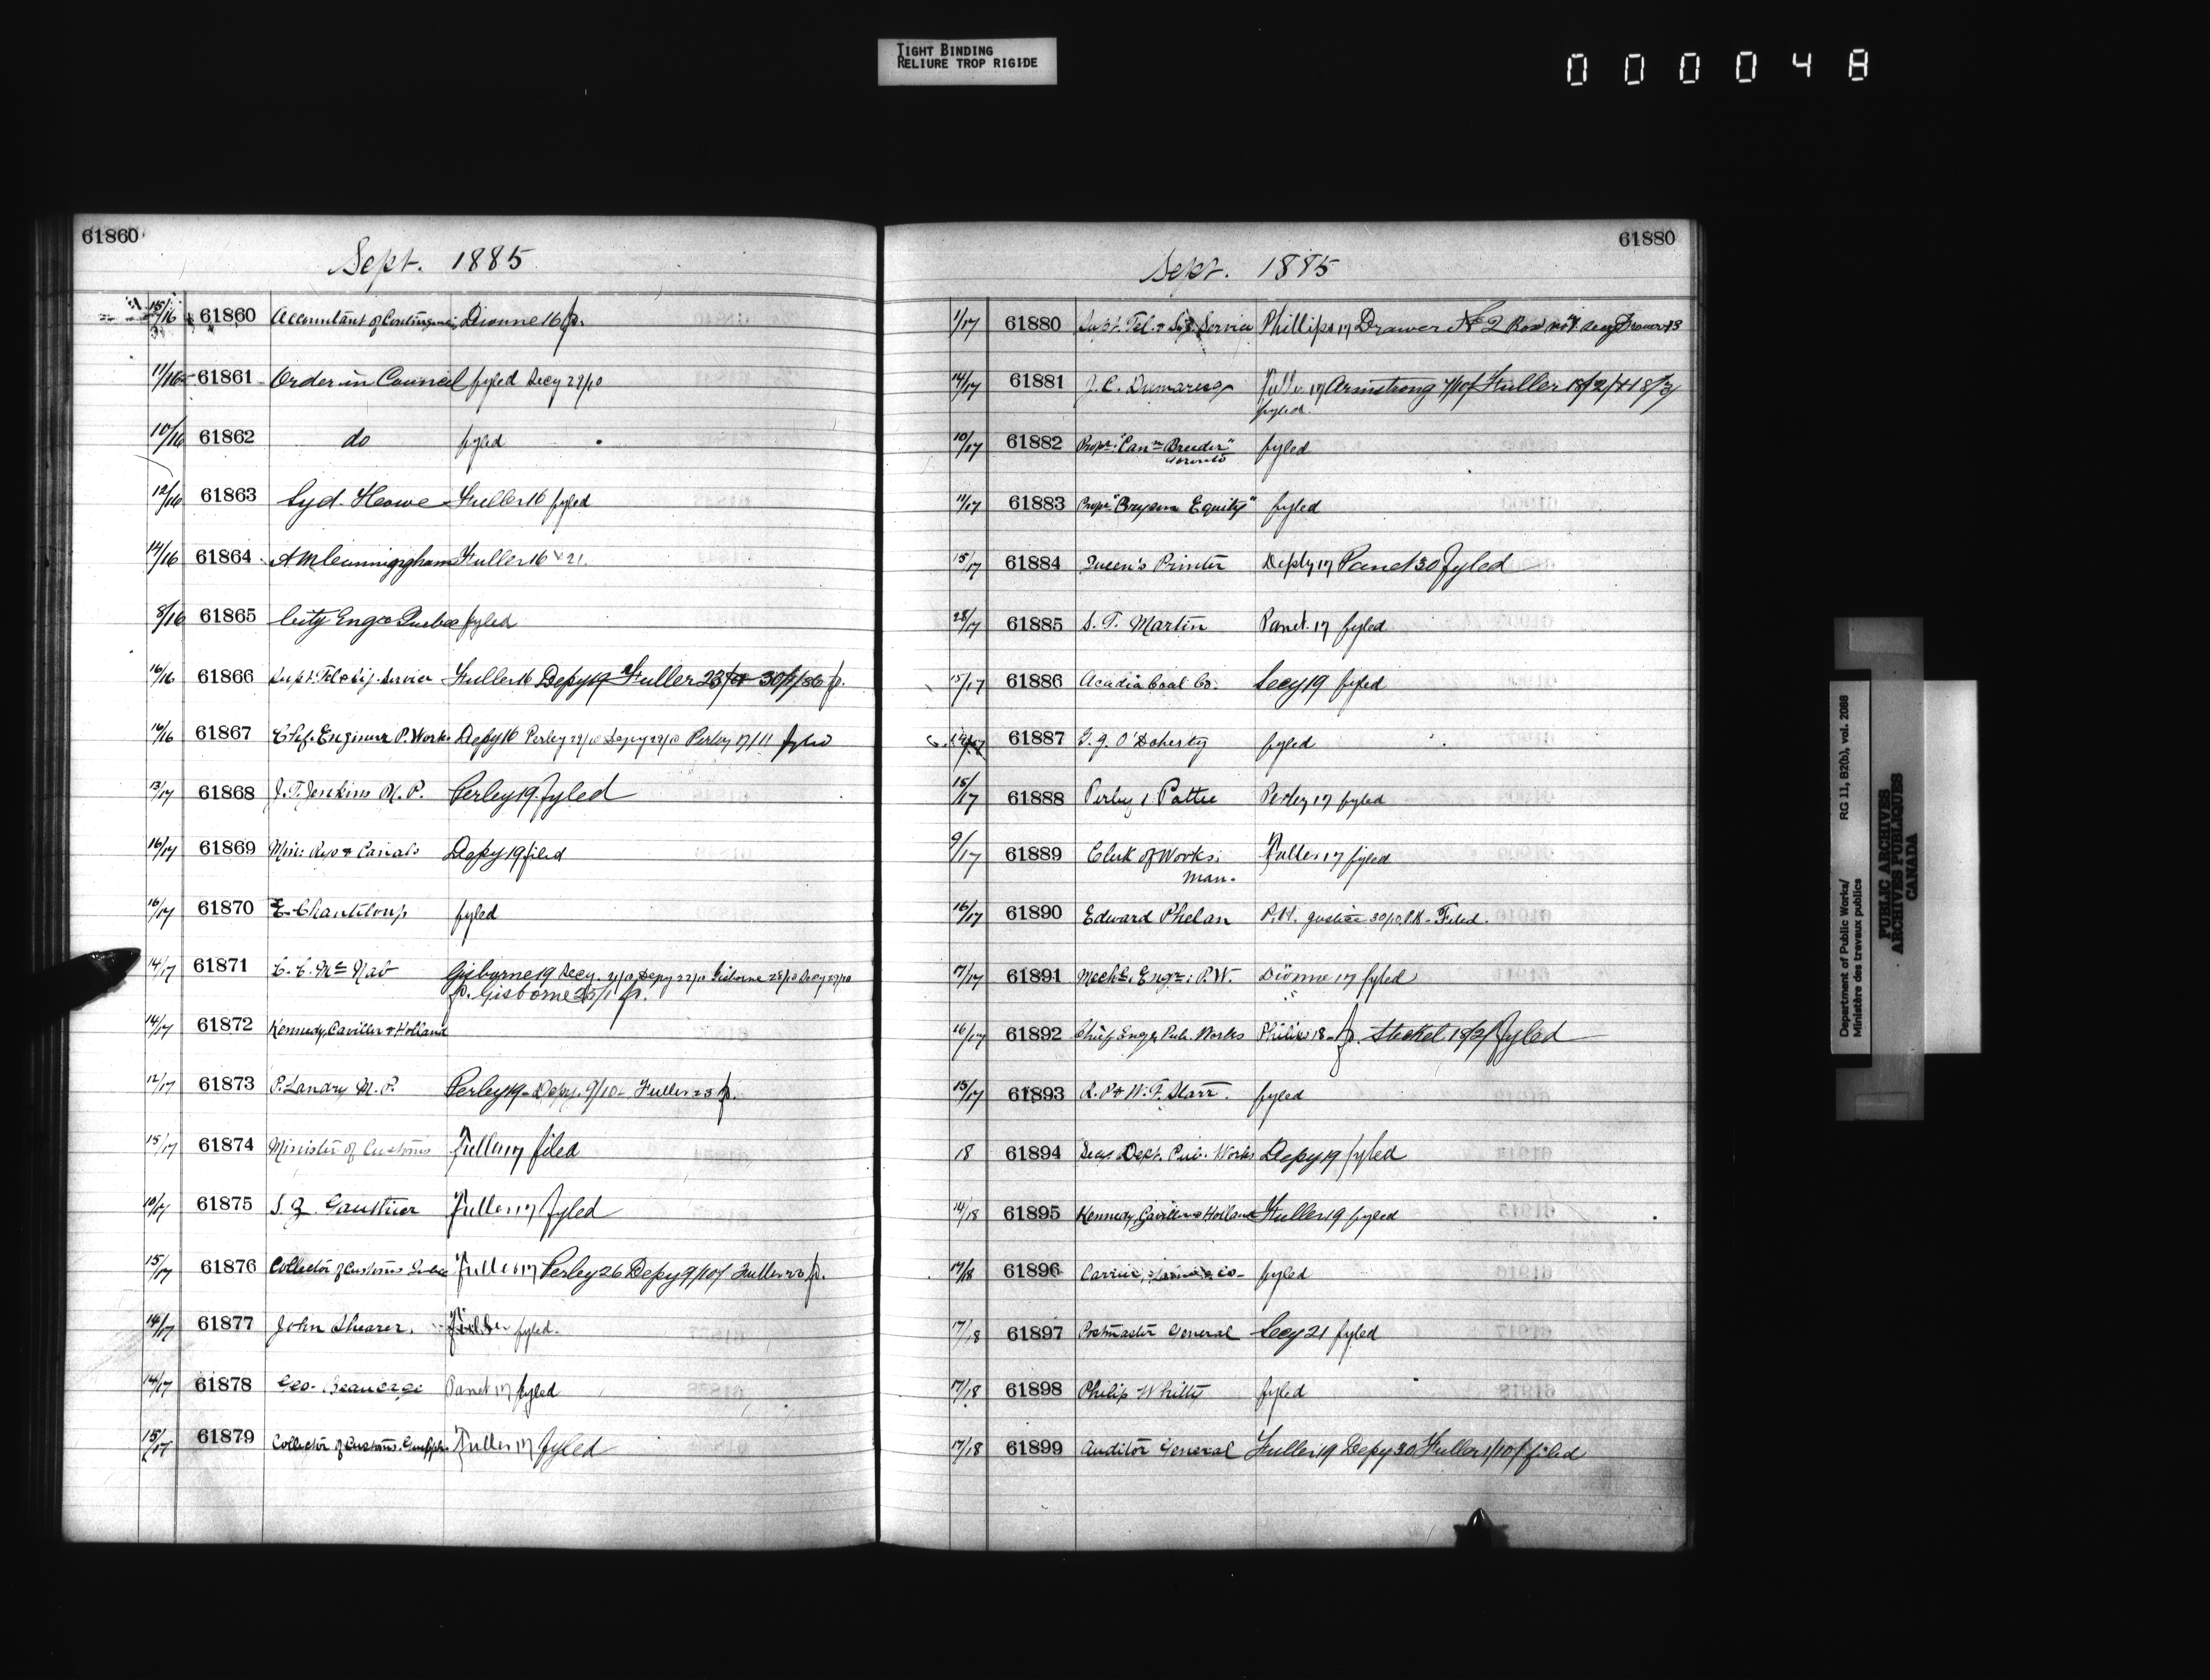 TIGHT BINDING
RELIURE TROP RIGIDE
000048
61860
Sept. 1885
15/16 61860 Accountant of Contingencies Dionne 16 fd.
11/16 61861 Order in Council fyled Secy 29/10
10/16 61862 do fyled
12/16 61863 Syd. Howe Fuller 16 fyled
14/16 61864 A M Cunningham Fuller 16 21.
8/16 61865 City Engr Quebec fyled
16/16 61866 Supt. Tel & Sig. Service Fuller 16 Depy 19 Fuller 23
16/16 61867 Chf. Engineer P. Works Depy 16 Perley 29/10 Depy 29/10 Perley 17/11 fyled
13/17 61868 J. T. Jenkins M. P. Perley 19 fyled
16/17 61869 Min: Rys & Canals Depy 19 filed
16/17 61870 E. Chanteloup fyled
14/17 61871 C. C. McNab Gisborne 19 Secy. Depy 22/10 Gisborne 28/10 Secy 29/10
fd. Gisborne
14/17 61872 Kennedy, Gaviller & Holland
12/17 61873 P. Landry M. P. Perley 19 Depy. 9/10 Fuller 23 fd.
15/17 61874 Minister of Customs Fuller 17 filed
10/17 61875 Fuller 17 fyled
15/17 61876 Collector of Customs Fuller 17 Perley 26 Depy 9/10 Fuller fd.
14/17 61877 John Shearer. Fuller fyled.
14/17 61878 Geo. Panet 17 fyled
15/17 61879 Collector of Customs. Guelph Fuller 17 fyled
61880
Sept. 1885
1/17 61880 Supt. Tel. & Sig. Service Phillips 17 Drawer No 2 Box
14/17 61881 J. C. Dumaresq Fuller 17 Armstrong 7/10 Fuller
fyled
10/17 61882 Propr. "Can.n Breeder" fyled
Toronto
11/17 61883 Propr "Bryson Equity" fyled
15/17 61884 Queen's Printer Depty 17 Panet 30 fyled
28/17 61885 S. T. Martin Panet. 17 fyled
15/17 61886 Acadia Coal Co. Secy 19 fyled
61887 O'Doherty fyled
15/17 61888 Perley & Pattee Perley 17 fyled
9/17 61889 Clerk of Works: Fuller 17 fyled
Man.
16/17 61890 Edward Phelan P. H. Justice 30/10 Filed.
7/17 61891 Mechl. Engr: P. W. Dionne 17 fyled
16/17 61892 Chief Engr Pub. Works Philips 18 fd. Steckel fyled
15/17 61893 R. P & W. F. Starr. fyled
18 61894 Secy Dept. Pub. Works Depy 19 fyled
14/18 61895 Kennedy, Gaviller & Holland Fuller 19 fyled
17/18 61896 Carrier, Co. fyled
17/18 61897 Postmaster General Secy 21 fyled
17/18 61898 Philip Whitty fyled
17/18 61899 Auditor General Fuller 19 Depy 30 Fuller 1/10 filed
Department of Public Works/
Ministère des travaux publics
RG 11, B2(b), vol. 2088
PUBLIC ARCHIVES
ARCHIVES PUBLIQUES
CANADA